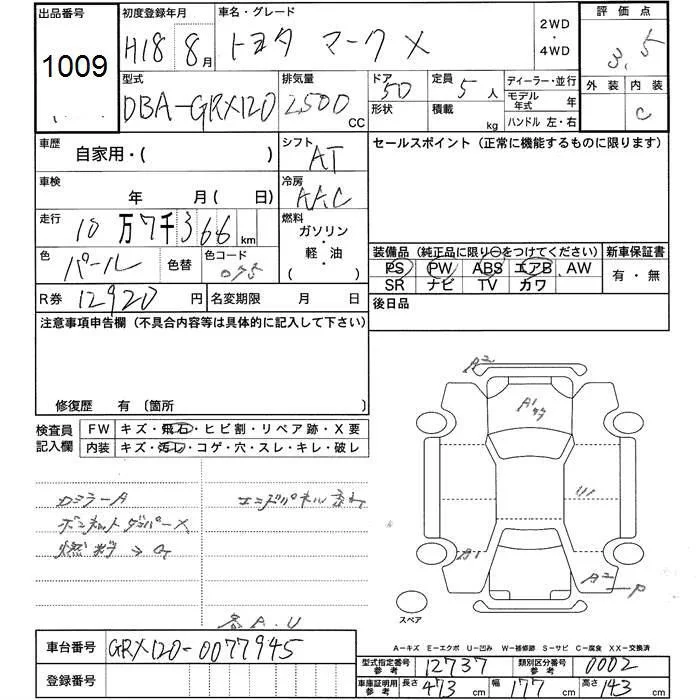 出品番号 初度登録年月 車名・グレード 2WD・4WD 評価点
1009 H18 8月 トヨタ マークX 3.5
外装 内装
C
型式 排気量 ドア 定員 ディーラー・並行
DBA-GRX120 2500 CC 5D 5人 モデル年式 年
形状 積載 kg ハンドル 左・右
車歴 自家用・( ) シフト AT セールスポイント(正常に機能するものに限ります)
車検 年 月( 日) 冷房 AAC
走行 10万7千366km 燃料 ガソリン・軽・油・( )
色 パール 色替 色コード 075
装備品(純正品に限り○をつけてください) 新車保証書
PS PW ABS エアB AW 有・無
SR ナビ TV カワ
R券 12920円 名変期限 月 日 後日品
注意事項申告欄(不具合内容等は具体的に記入して下さい)
修復歴 有〔箇所 〕
検査員記入欄 FW キズ・飛石・ヒビ割・リペア跡・X要
内装 キズ・汚レ・コゲ・穴・スレ・キレ・破レ
A2
A1
A1
A2 P
スペア
カミラーA
ボンネットダンパーX
各A.U
A-キズ E-エクボ U-凹み W-補修跡 S-サビ C-腐食 XX-交換済
車台番号 GRX120-0077945
型式指定番号参考 12737 類別区分番号参考 0002
登録番号
車庫証明用参考 長さ 473cm 幅 177cm 高さ 143cm